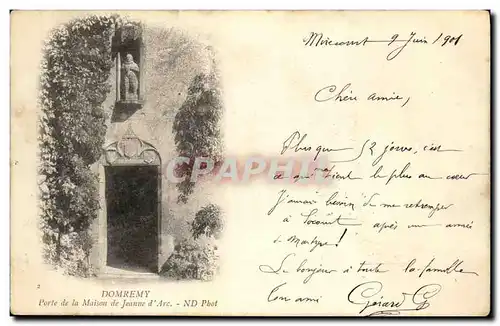 Mirecourt 9 Juin 1901
Chère amie,
Plus que 52 jours, c'est
ce qui me tient le plus au cœur
J'aurais besoin de me retremper
à après une année
de Martyre!
Le bonjour à toute la famille
Ton ami Gérard G
CPHPD
2
DOMREMY
Porte de la Maison de Jeanne d'Arc. - ND Phot